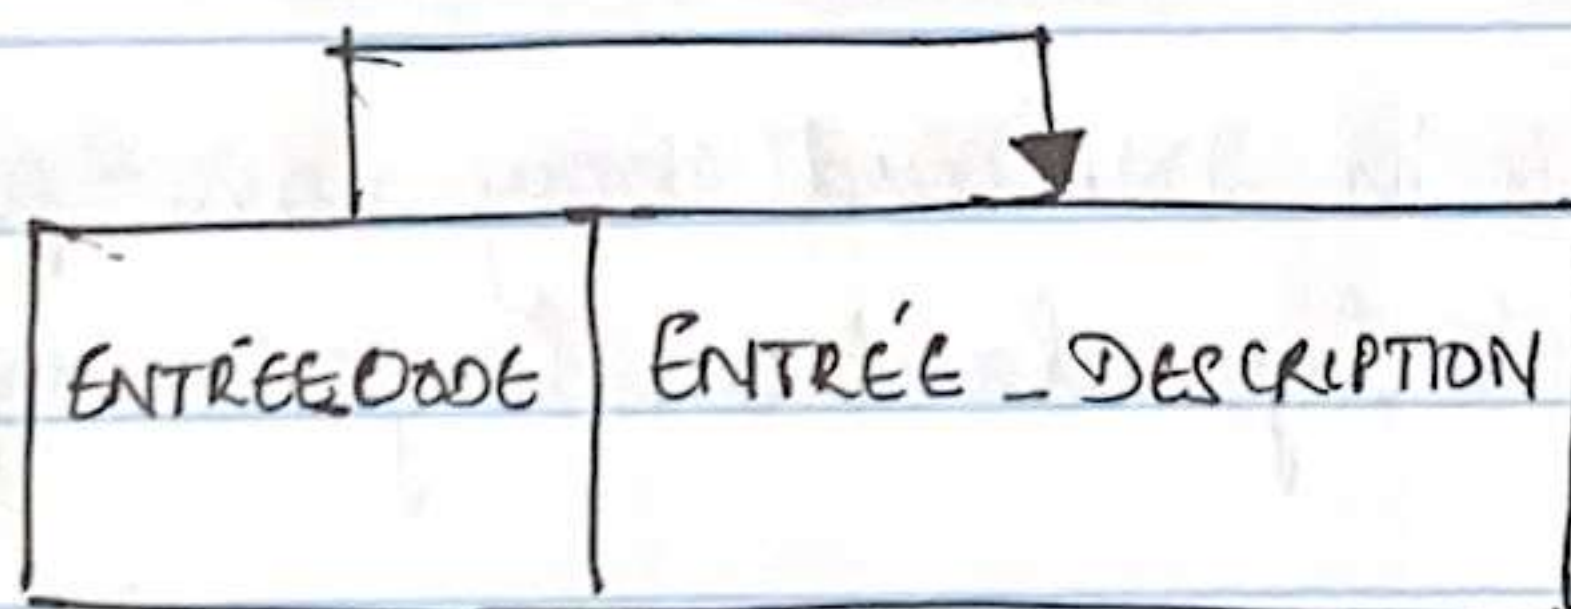 ENTRÉE_CODE ENTRÉE_DESCRIPTION